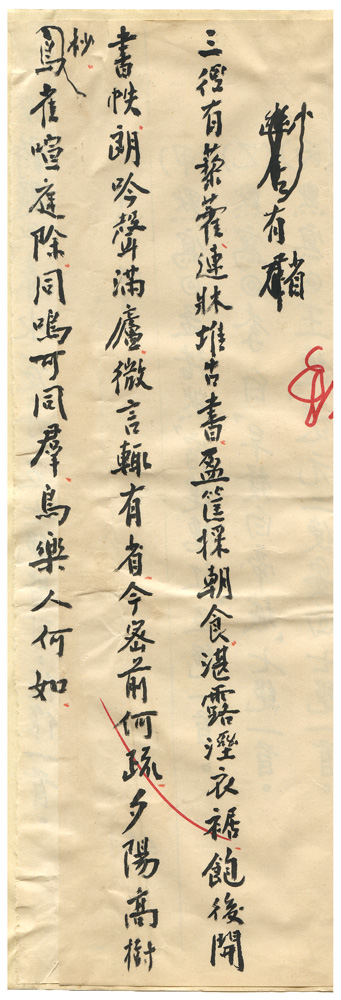 有省
三徑有藜藿連牀堆古書盈筐採朝食湛露溼衣裾飽後開
書帙朗吟聲滿廬微言輒有省今密前何疏夕陽高樹
杪鳥雀喧庭除同鳴可同羣鳥樂人何如